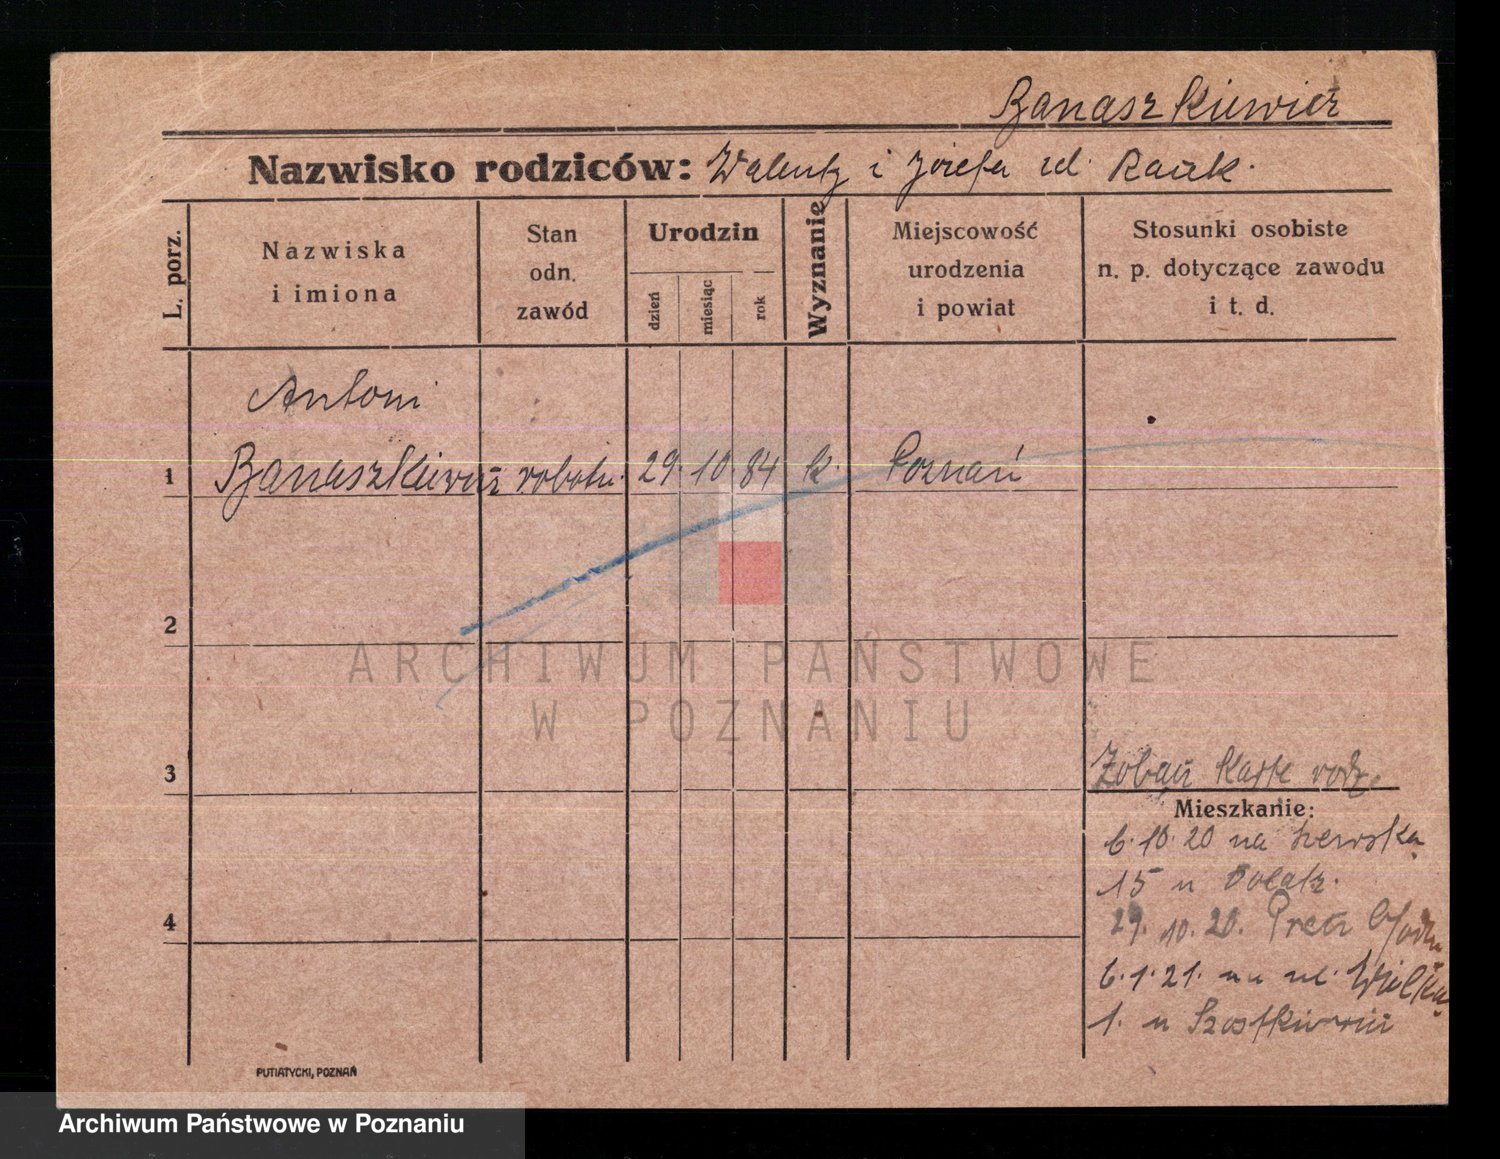 Banaszkiewicz
Nazwisko rodziców: Walenty i Józefa
L. porz.
Nazwiska
i imiona
Stan
odn.
zawód
Urodzin
dzień
miesiąc
rok
Wyznanie
Miejscowość
urodzenia
i powiat
Stosunki osobiste
n. p. dotyczące zawodu
i t. d.
Antoni
1 Banaszkiewicz robotn. 29. 10. 84 k. Poznań
2
ARCHIWUM PAŃSTWOWE
W POZNANIU
3
Zobacz kartę rodz.
Mieszkanie:
6.10.20 na
15 u
4
29.10.20.
6.1.21. na ul. Wielką
1. u
PUTIATYCKI, POZNAŃ
Archiwum Państwowe w Poznaniu